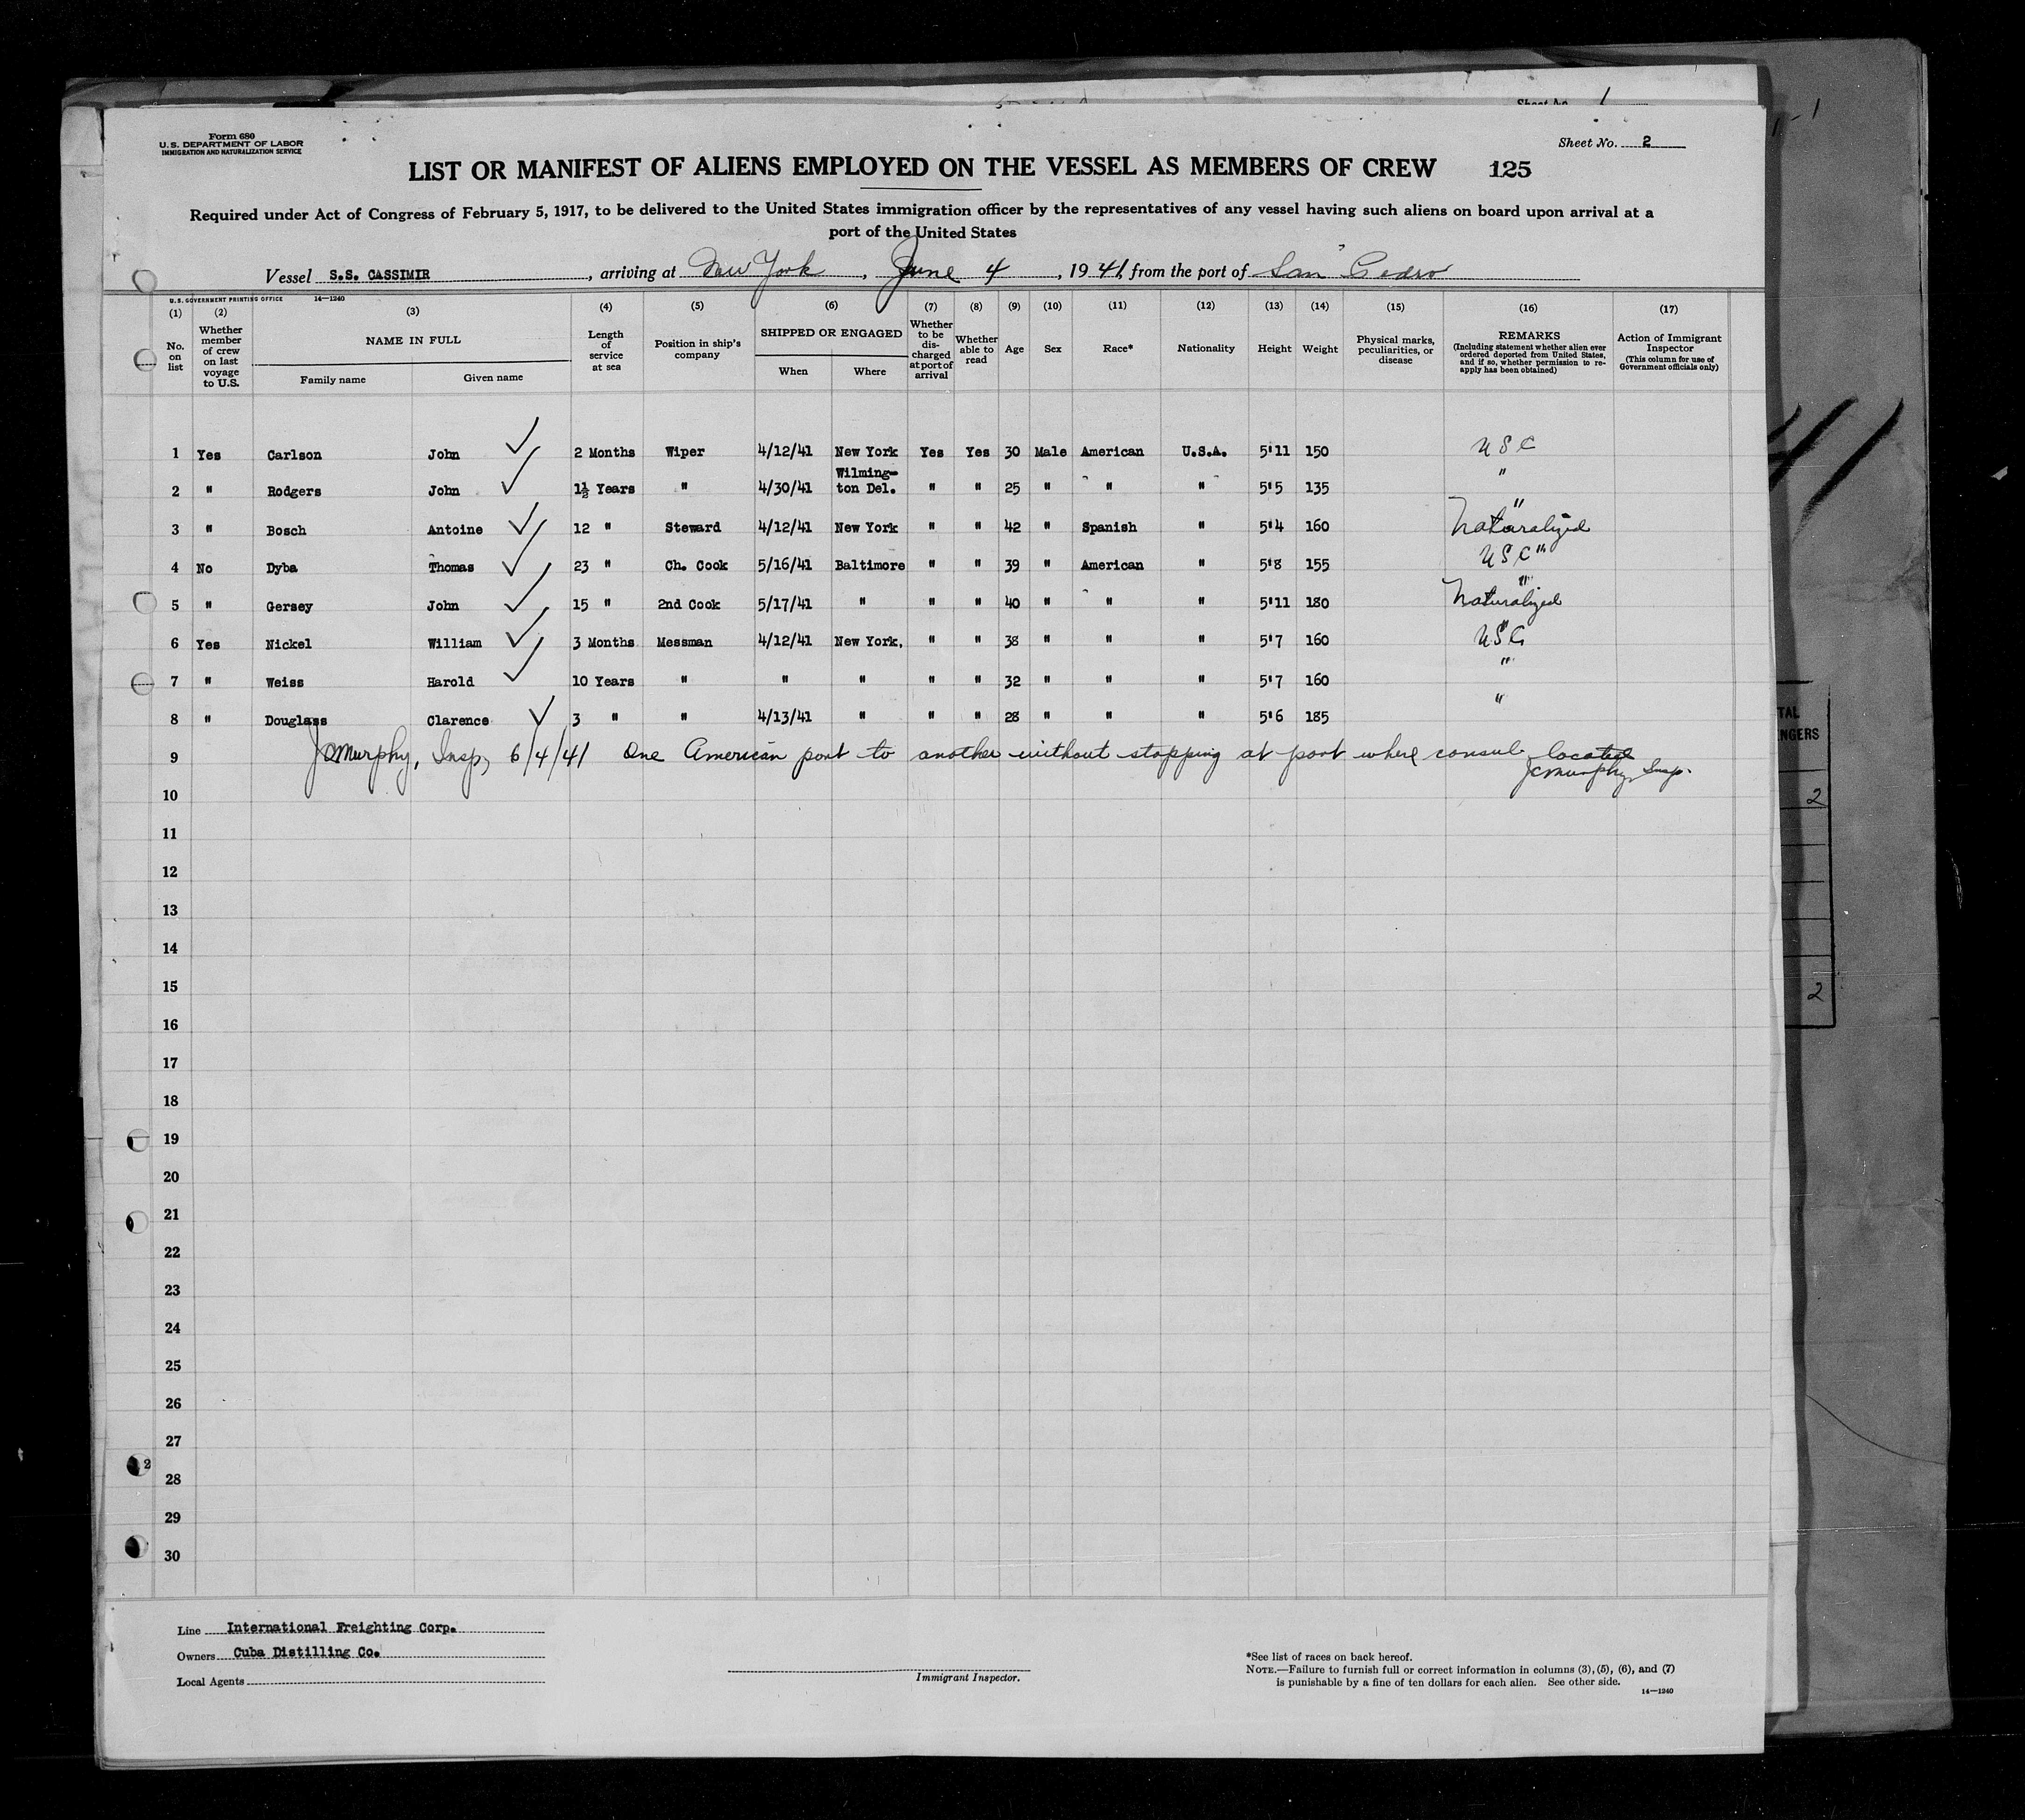 Sheet No. 1
Form 680
U.S. DEPARTMENT OF LABOR
IMMIGRATION AND NATURALIZATION SERVICE
Sheet No. 2
LIST OR MANIFEST OF ALIENS EMPLOYED ON THE VESSEL AS MEMBERS OF CREW 125
Required under Act of Congress of February 5, 1917, to be delivered to the United States immigration officer by the representatives of any vessel having such aliens on board upon arrival at a
port of the United States
Vessel S.S. CASSIMIR, arriving at New York, June 4, 1941, from the port of San Pedro
U.S. GOVERNMENT PRINTING OFFICE 14—1240
(1) (2) (3) (4) (5) (6) (7) (8) (9) (10) (11) (12) (13) (14) (15) (16) (17)
No. on list
Whether member of crew on last voyage to U.S.
NAME IN FULL
Family name Given name
Length of service at sea
Position in ship's company
SHIPPED OR ENGAGED
When Where
Whether to be discharged at port of arrival
Whether able to read
Age
Sex
Race*
Nationality
Height
Weight
Physical marks, peculiarities, or disease
REMARKS
(Including statement whether alien ever ordered deported from United States, and if so, whether permission to reapply has been obtained)
Action of Immigrant Inspector
(This column for use of Government officials only)
1 Yes Carlson John ✓ 2 Months Wiper 4/12/41 New York Yes Yes 30 Male American U.S.A. 5'11 150 U S C
2 " Rodgers John ✓ 1½ Years " 4/30/41 Wilmington Del. " " 25 " " " 5'5 135 "
3 " Bosch Antoine ✓ 12 " Steward 4/12/41 New York " " 42 " Spanish " 5'4 160 " Naturalized
4 No Dyba Thomas ✓ 23 " Ch. Cook 5/16/41 Baltimore " " 39 " American " 5'8 155 U S C "
5 " Gersey John ✓ 15 " 2nd Cook 5/17/41 " " " 40 " " " 5'11 180 " Naturalized
6 Yes Nickel William ✓ 3 Months Messman 4/12/41 New York, " " 38 " " " 5'7 160 U S C
7 " Weiss Harold ✓ 10 Years " " " " " 32 " " " 5'7 160 "
8 " Douglass Clarence ✓ 3 " " 4/13/41 " " " 28 " " " 5'6 185 "
9 JCMurphy, Insp, 6/4/41 One American port to another without stopping at port where consul located
JCMurphy, Insp.
10
11
12
13
14
15
16
17
18
19
20
21
22
23
24
25
26
27
2
28
29
30
Line International Freighting Corp.
Owners Cuba Distilling Co.
Local Agents
Immigrant Inspector.
*See list of races on back hereof.
NOTE.—Failure to furnish full or correct information in columns (3), (5), (6), and (7)
is punishable by a fine of ten dollars for each alien. See other side.
14—1240
41
2
2